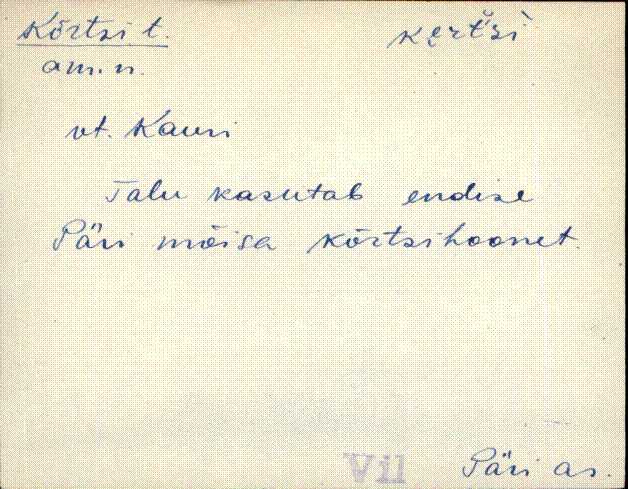 Kõrtsi t. kert̆si
am. n.
vt. Kauri
Talu kasutab endise
Päri mõisa kõrtsihoonet.
Vil Päri as.